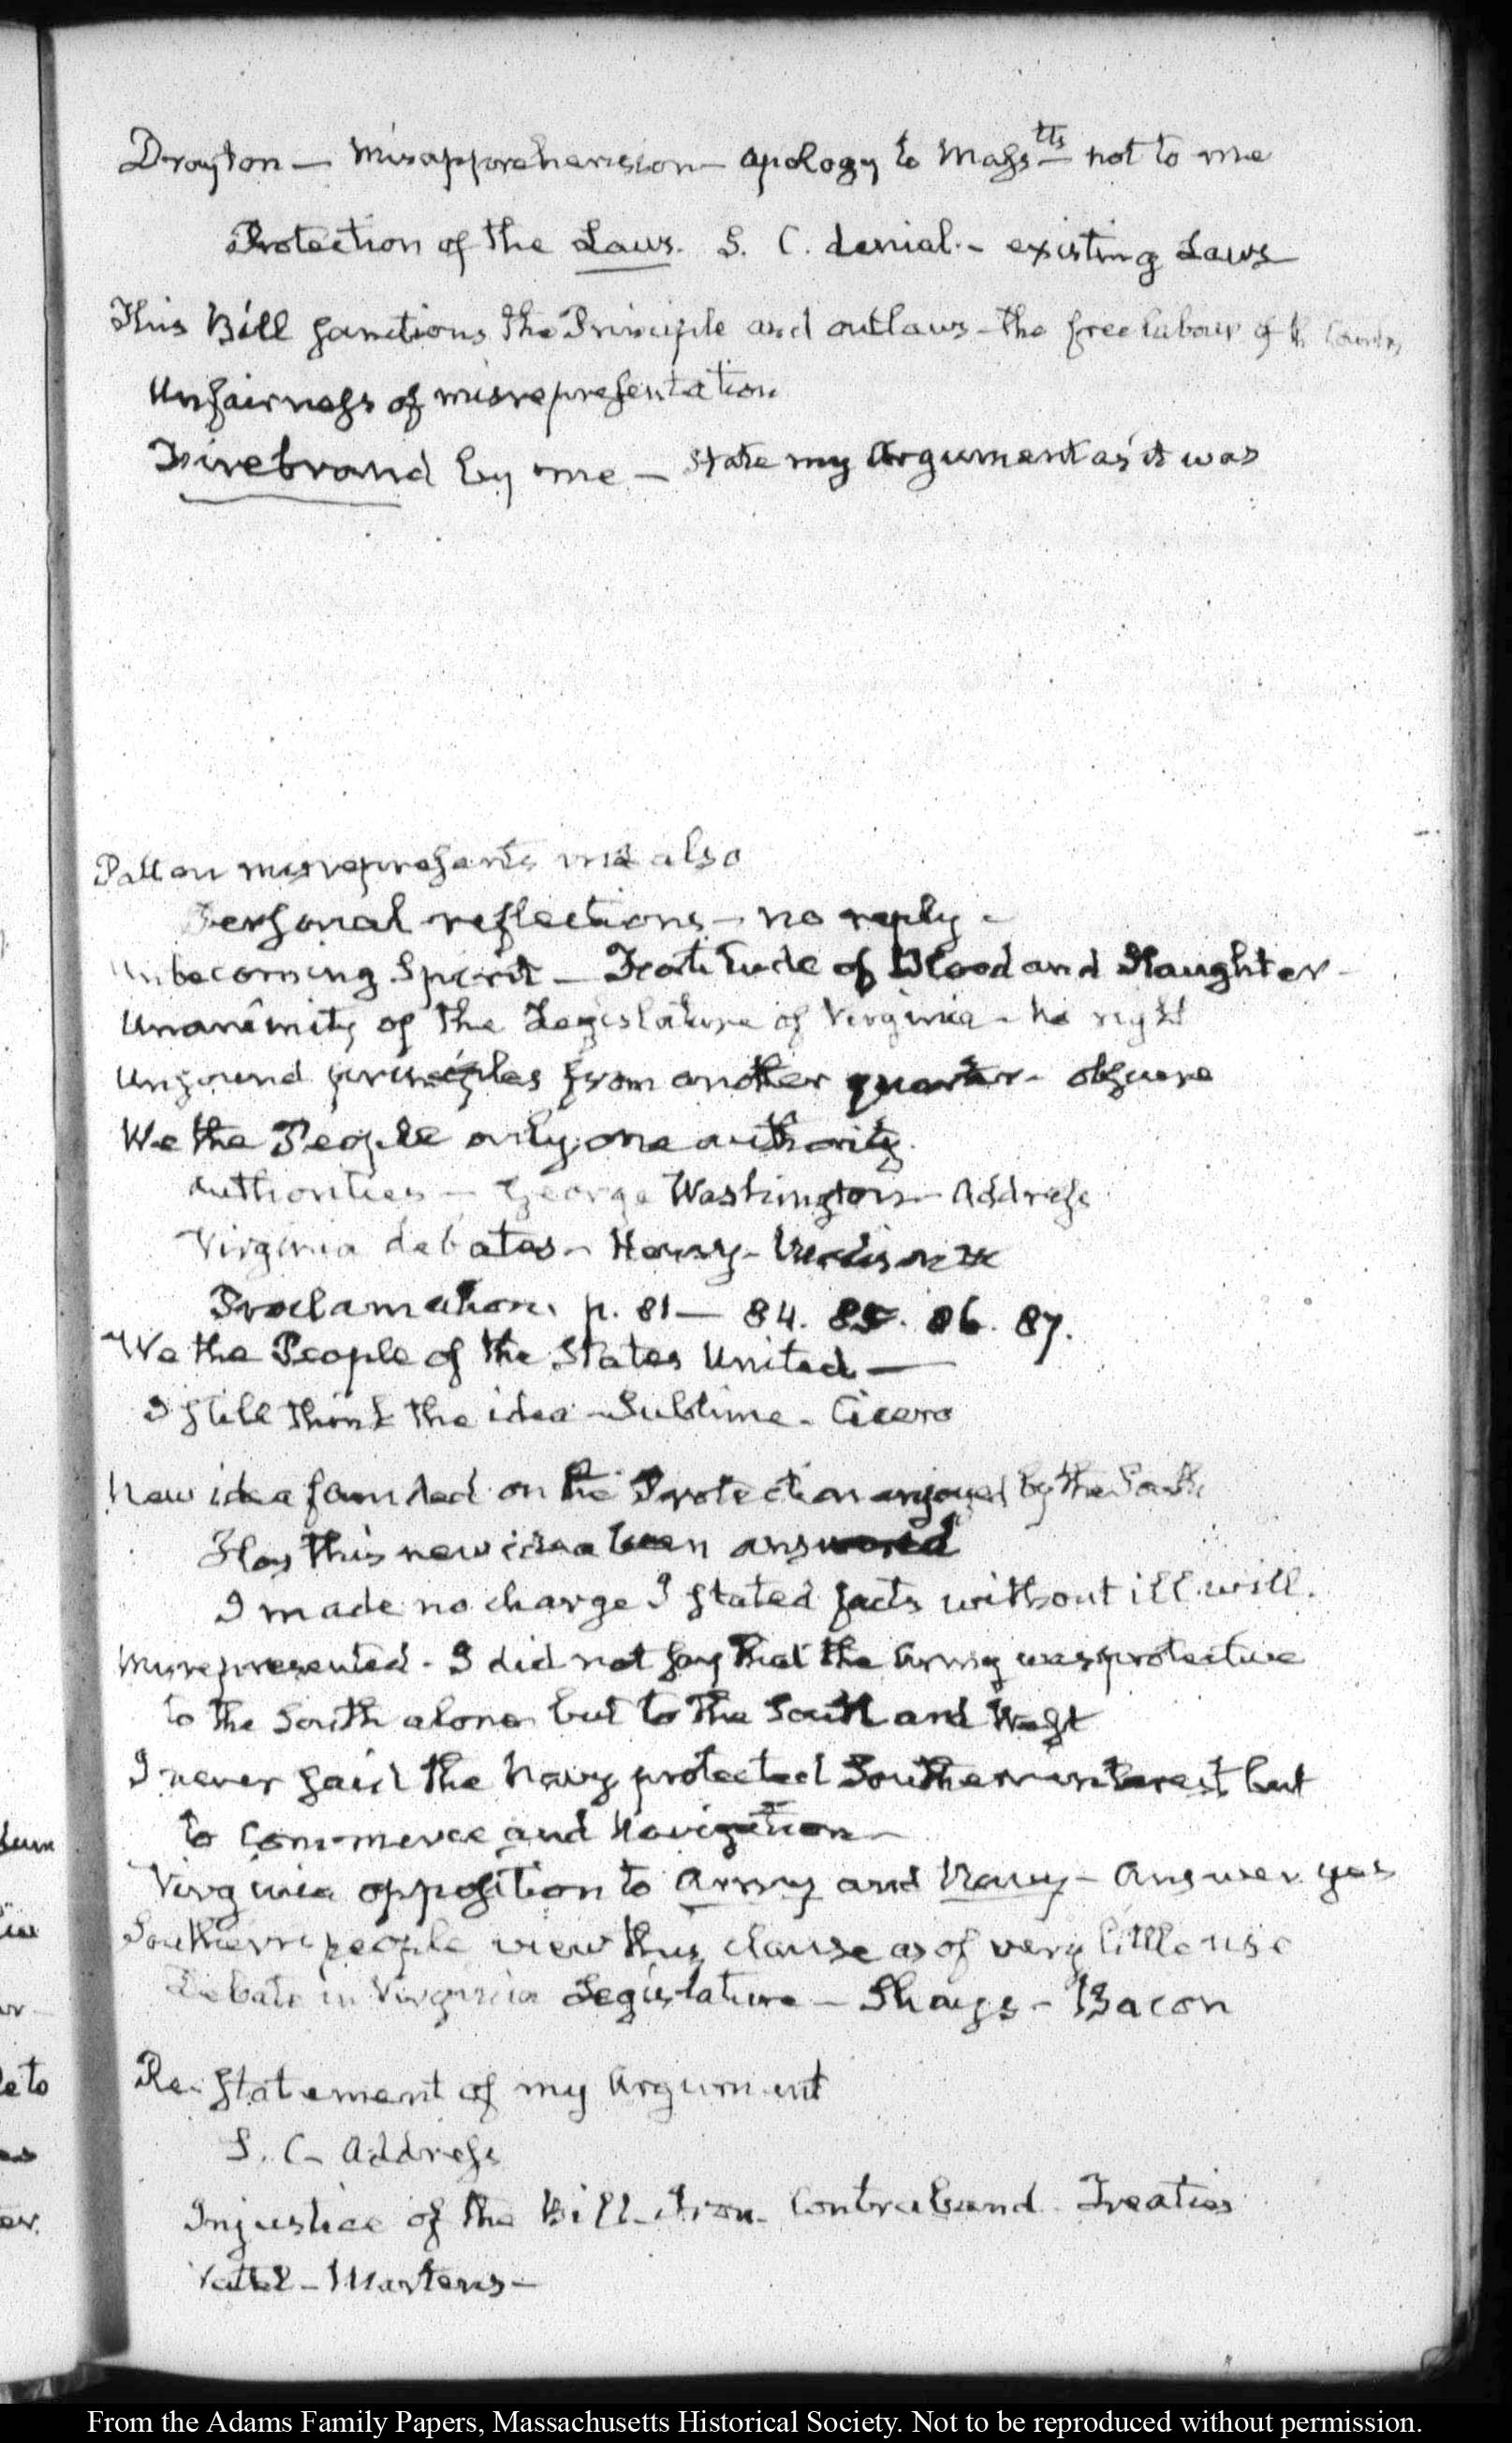 Drayton — misapprehension — apology to Mass.tts — not to me
Protection of the Laws. S. C. denial — existing Laws
This Bill sanctions the Principle and outlaws — the free labour of the Country
Unfairness of misrepresentation
Firebrand by me — State my Argument as it was
Patton misrepresents me also
Personal reflections — no reply —
Unbecoming Spirit — of Blood and Slaughter —
Unanimity of the Legislature of Virginia — no right
Unsound principles from another quarter — obscure
We the People only one authority.
Authorities — George Washington — Address
Virginia debates — Henry — Madison
Proclamation. p. 81 — 84. 85. 86. 87.
We the People of the States United —
I still think the idea — Sublime — Cicero
New idea founded on the Protection enjoyed by the South
Has this new idea been answered
I made no charge I stated facts without ill will.
Misrepresented — I did not say that the Army was protective
to the South alone but to the South and West
I never said the Navy protected Southern interest but
to Commerce and Navigation —
Virginia opposition to Army and Navy — Answer yes
Southern people view this clause as of very little use
Debate in Virginia Legislature — Shays — Bacon
Re-statement of my Argument
S. C — Address
Injustice of the Bill — Iron — Contraband — Treaties
Vattel — Martens —
dum
eto
er.
From the Adams Family Papers, Massachusetts Historical Society. Not to be reproduced without permission.